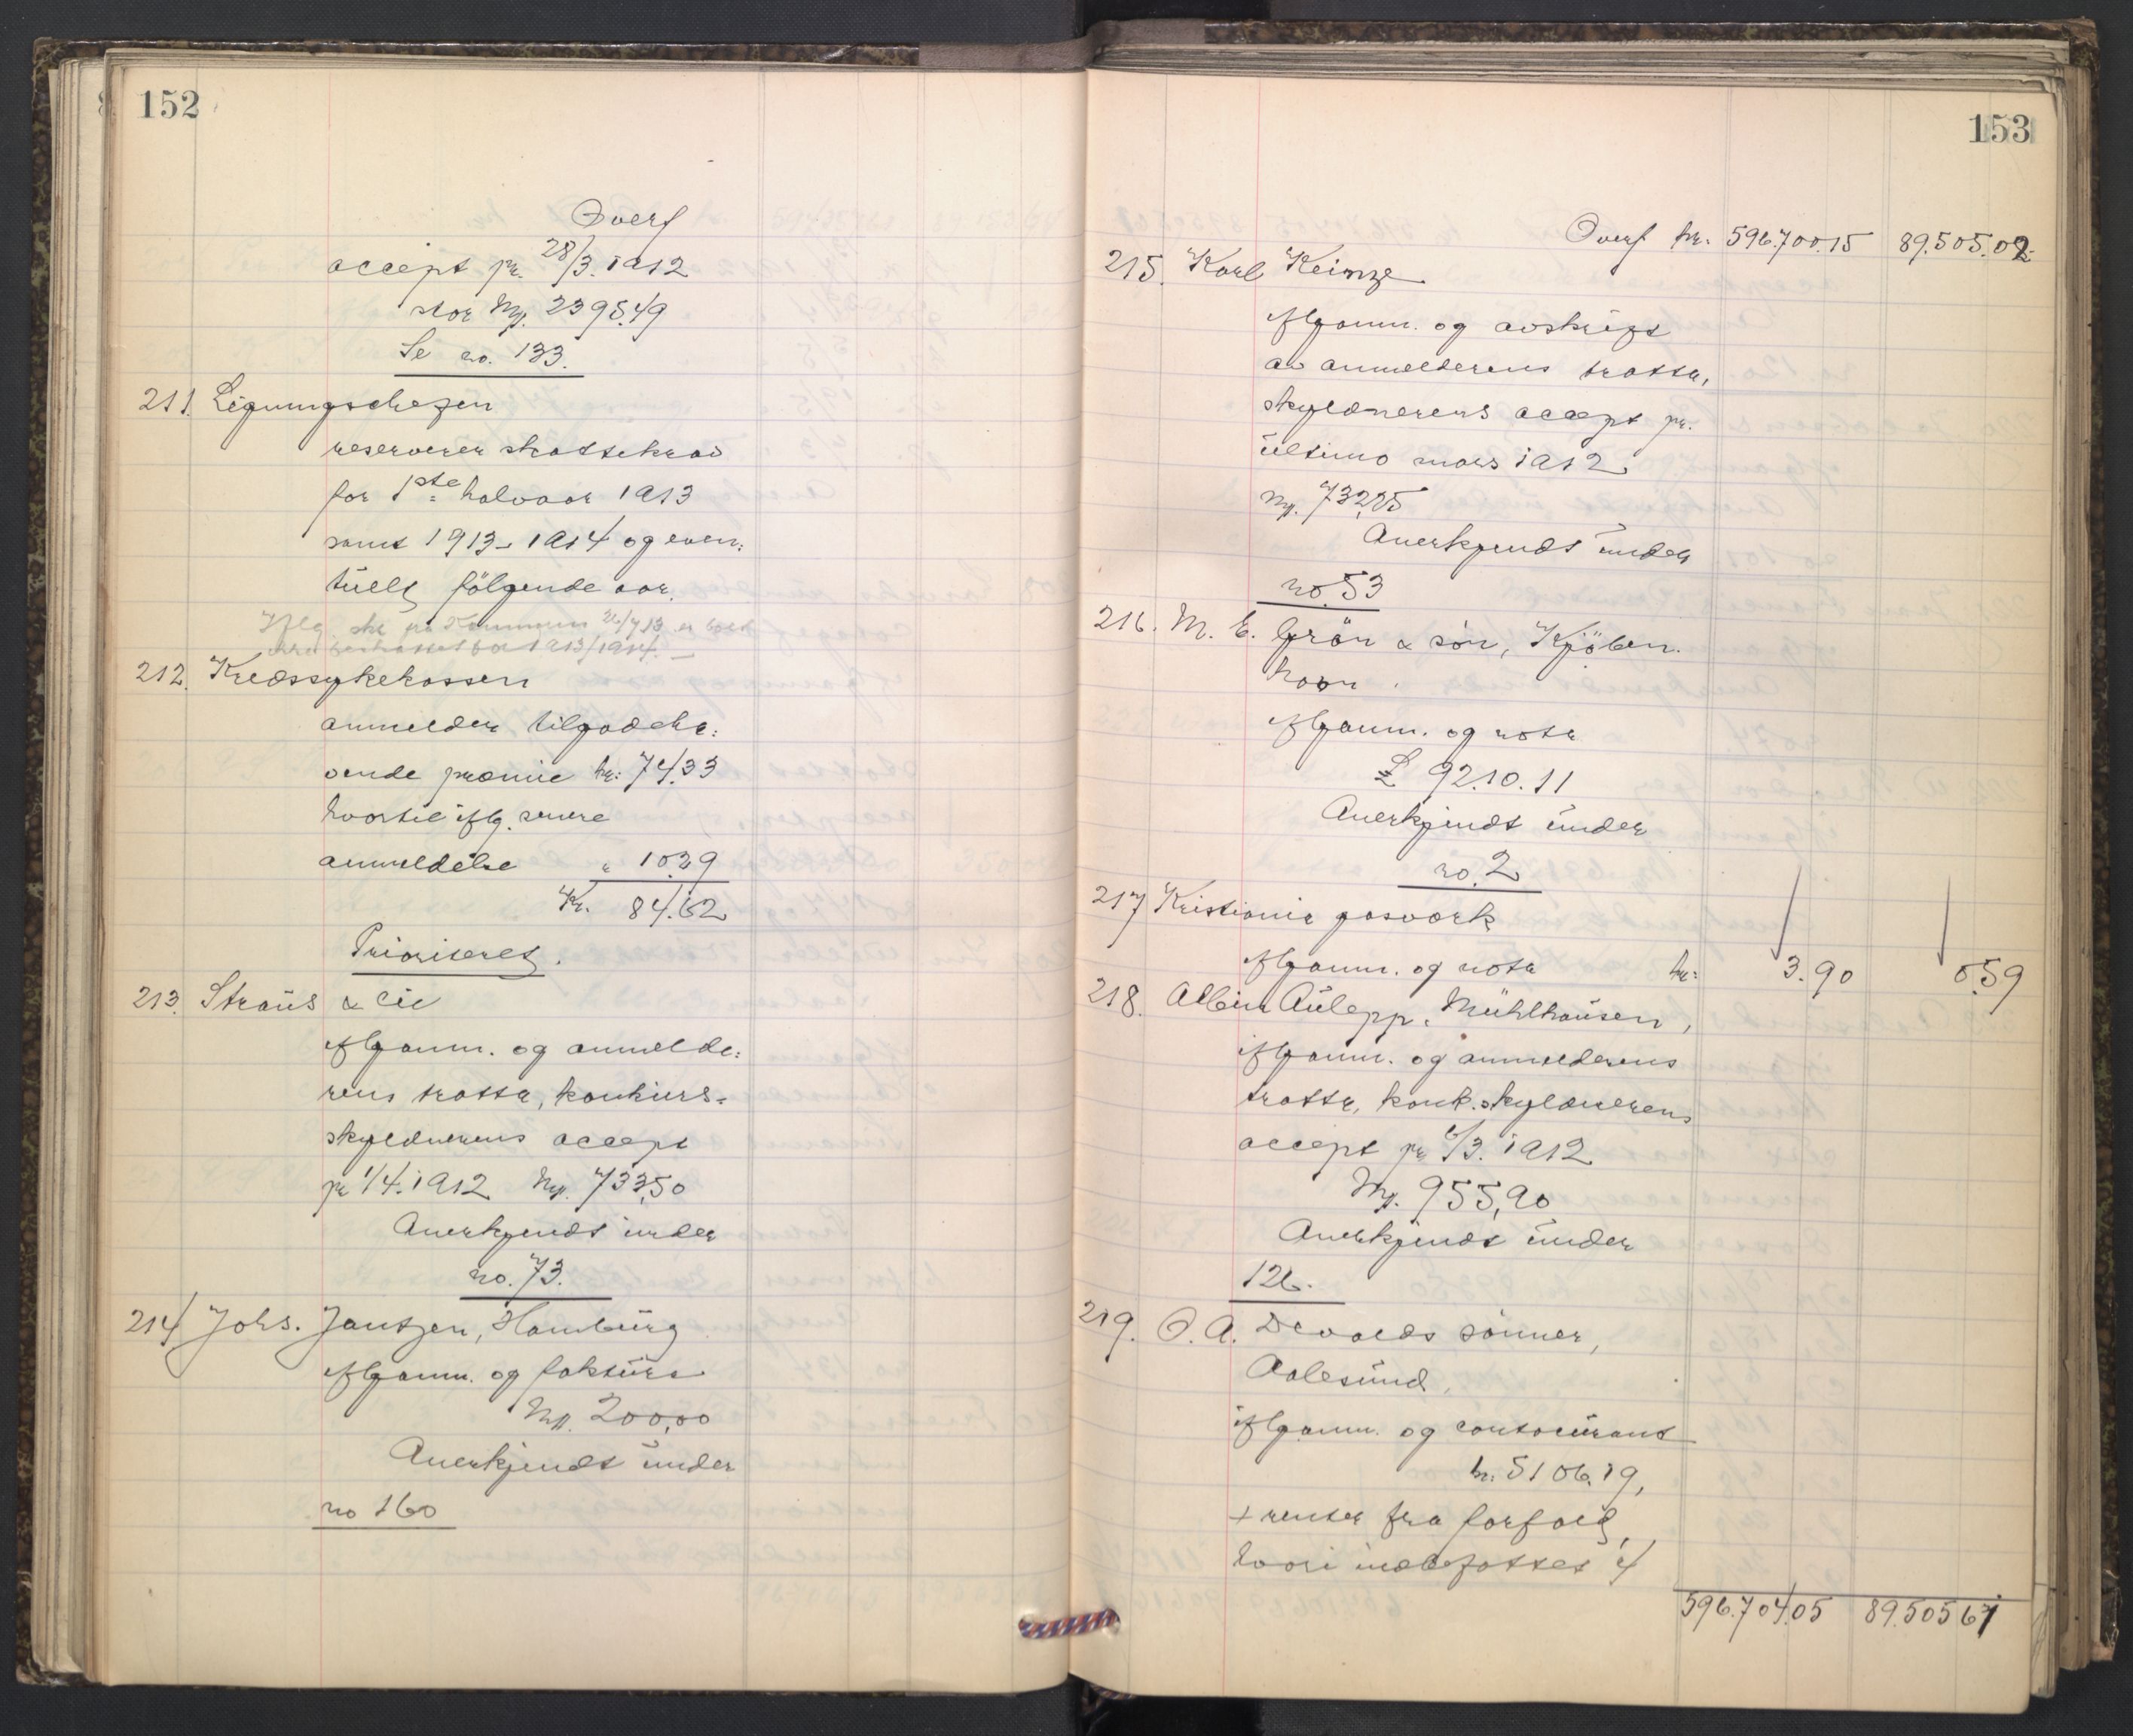 152
Overf
accept pr. 28/3. 1912
stor Mk. 2395.49
Se no. 133.
211. Ligningschefen
reserverer skattekrav
for 1ste halvaar 1913
samt 1913-1914 og even:
tuelt følgende aar.
212. Kredssykekassen
anmelder tilgodeha:
vende præmie kr: 74.33
hvortil iflg. senere
anmeldelse " 10.29
Kr. 84.62
Prioriteret.
213. Straus & Cie
iflg anm. og anmelde:
rens tratta, konkurs-
skyldnerens accept
pr 1/4. 1912 Mk. 733,50
Anerkjendt under
no. 73.
214 Johs. Jantzen, Hamburg
iflg anm. og faktura
Mk. 200,00
Anerkjendt under
no 160
153
Overf kr. 596.700.15 89.505.02
215. Karl Keinze
iflg anm. og avskrift
av anmelderens tratta,
skyldnerens accept pr.
ultimo mars 1912
Mk. 732,25
Anerkjendt under
no. 53
216. M. E. Grön & sön, Kjöben.
havn.
iflg anm. og nota
£ 92.10.11
Anerkjendt under
no. 2
217 Kristiania gasværk
iflg anm. og nota kr: 3.90 0.59
218. Albin Aulepp, Mühlhausen,
iflg anm. og anmelderens
tratta, konk. skyldnerens
accept pr 6/3. 1912
Mk. 955,90
Anerkjendt under
126.
219. O. A. Devolds sönner,
Aalesund,
iflg anm. og contocurant
kr. 5106.19,
+ renter fra forfald,
hvori indbefattet 4
596.704.05 89.505 61